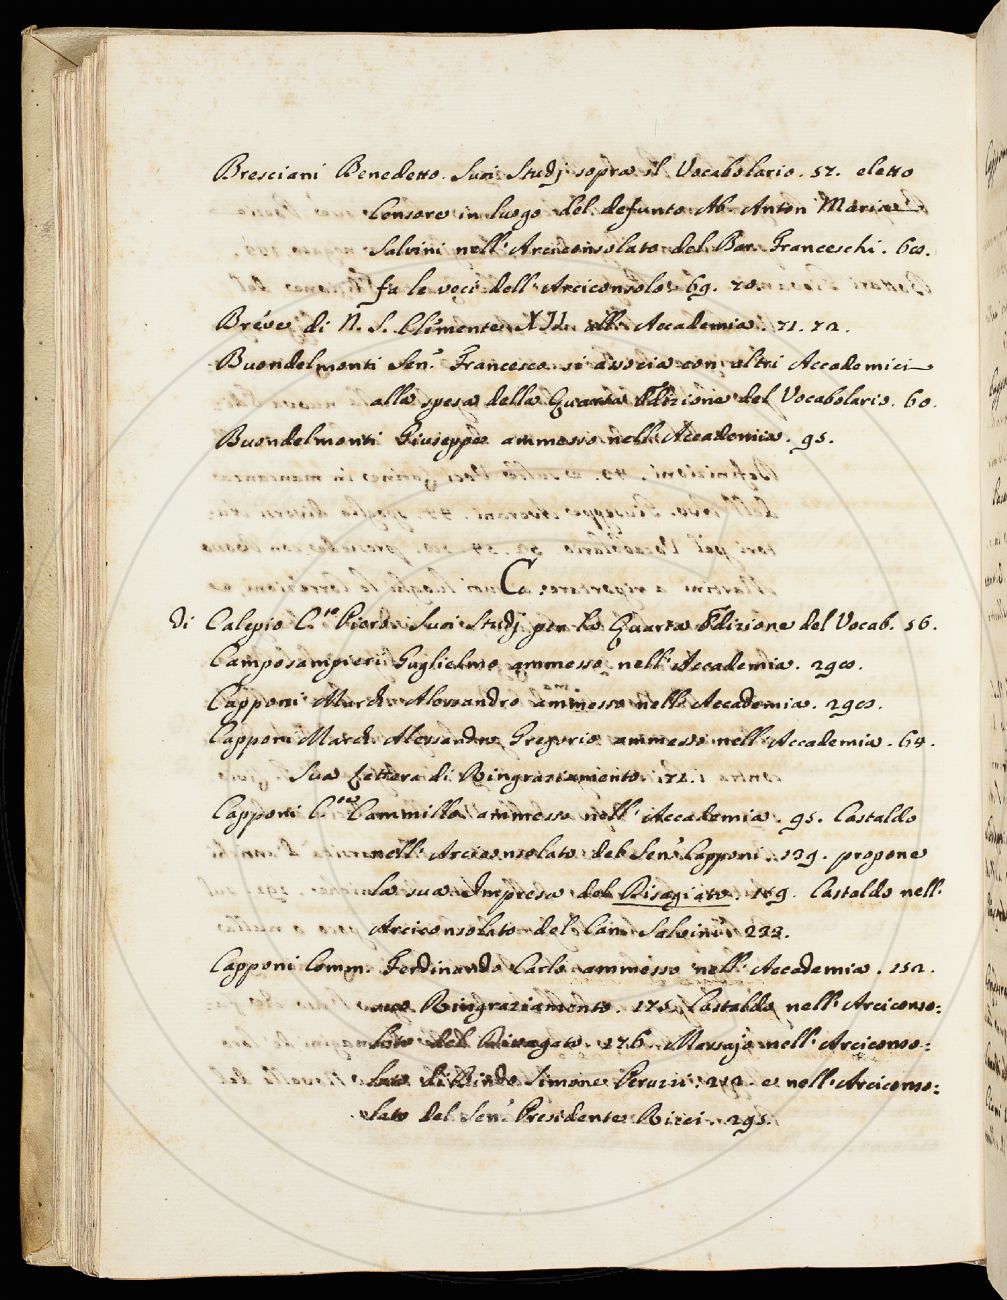 Bresciani Benedetto. Suoi Studj sopra il Vocabolario. 57. eletto
Censore in luogo del defunto Ab. Anton Maria
Salvini nell' Arciconsolato del Bar. Franceschi. 60.
fa le veci dell' Arciconsolo 69. 70.
Breve di N. S. Clemente XII. all' Accademia. 71. 72.
Buondelmonti Sen.r Francesco si associa con altri Accademici
alla spesa della Quarta Edizione del Vocabolario. 60.
Buondelmonti Giuseppe ammesso nell' Accademia. 95.
C
di Calepio C.te Piero. Suoi Studj per la Quarta Edizione del Vocab. 56.
Camposampieri Guglielmo ammesso nell' Accademia.
Capponi March. Alessandro ammesso nell' Accademia.
Capponi March. Alessandro Gregorio ammesso nell' Accademia. 64.
Sua Lettera di Ringraziamento. 72.
Capponi Cammillo ammesso nell' Accademia. 95. Castaldo
nell' Arciconsolato del Sen.r Capponi. 139. propone
la sua Impresa del Disagiato. 159. Castaldo nell'
Arciconsolato del Can. Salvini 233.
Capponi Comm. Ferdinando Carlo ammesso nell' Accademia. 152.
suo Ringraziamento. 175. Castaldo nell' Arciconso:
lato del 276. Massajo nell' Arciconso:
lato di Bindo Simone Peruzzi. e nell' Arciconso:
lato del Sen.r Presidente Ricci. 295.